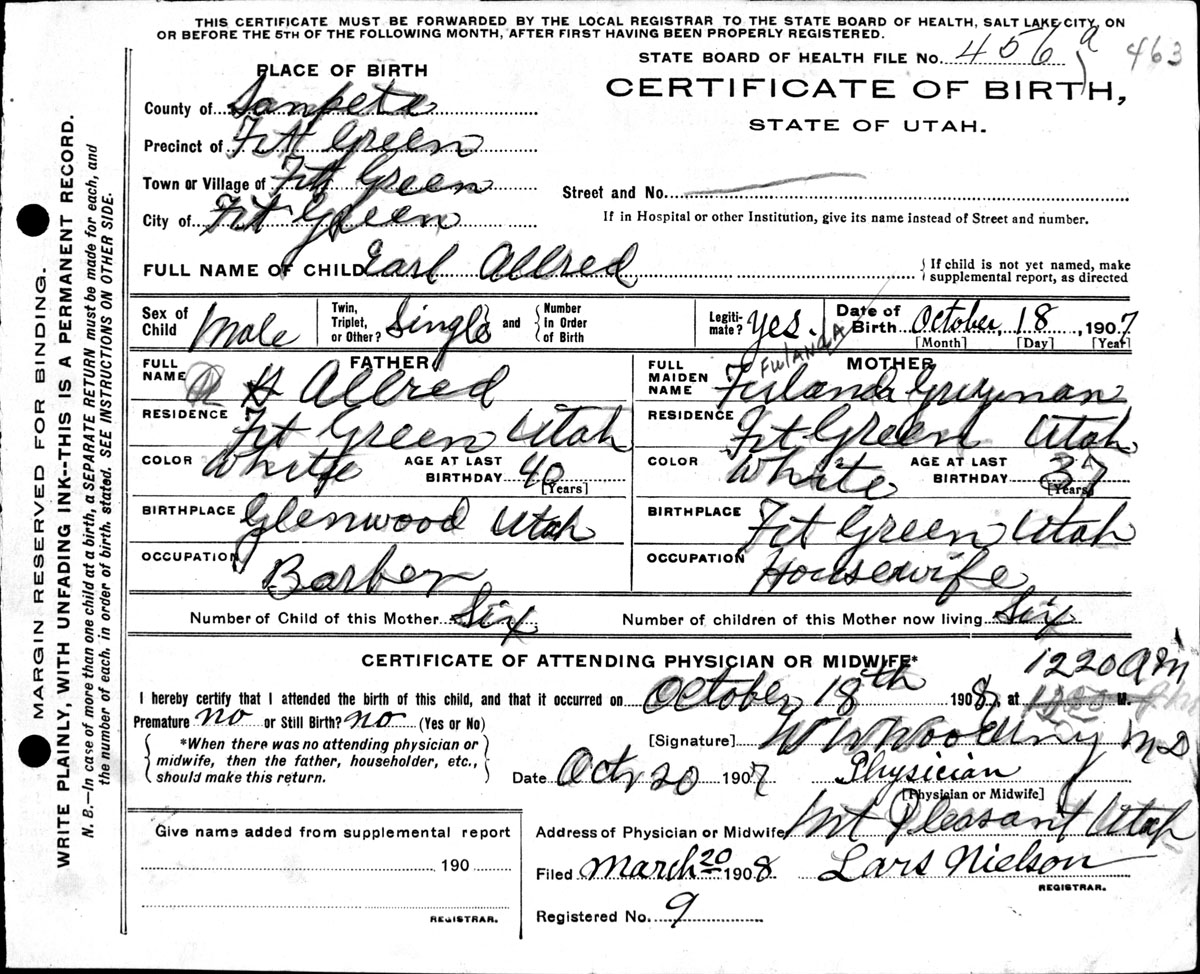 THIS CERTIFICATE MUST BE FORWARDED BY THE LOCAL REGISTRAR TO THE STATE BOARD OF HEALTH, SALT LAKE CITY, ON
OR BEFORE THE 5TH OF THE FOLLOWING MONTH, AFTER FIRST HAVING BEEN PROPERLY REGISTERED.
STATE BOARD OF HEALTH FILE No. 456 a 463
PLACE OF BIRTH
CERTIFICATE OF BIRTH,
STATE OF UTAH.
County of Sanpete
Precinct of Ft Green
Town or Village of Ft Green
Street and No.
City of Ft Green
If in Hospital or other Institution, give its name instead of Street and number.
FULL NAME OF CHILD Earl Allred
{If child is not yet named, make
supplemental report, as directed
Sex of Child Male
Twin, Triplet, or Other? Single and {Number in Order of Birth
Legiti-mate? Yes.
Date of Birth October, 18, 1907
[Month] [Day] [Year]
FATHER
FULL NAME H Allred
RESIDENCE Ft Green Utah
COLOR White AGE AT LAST BIRTHDAY 40 [Years]
BIRTHPLACE Glenwood Utah
OCCUPATION Barber
MOTHER
FULANDA
FULL MAIDEN NAME Fulanda Guyman
RESIDENCE Ft Green Utah
COLOR White AGE AT LAST BIRTHDAY 37 [Years]
BIRTHPLACE Ft Green Utah
OCCUPATION Housewife
Number of Child of this Mother Six
Number of children of this Mother now living Six
CERTIFICATE OF ATTENDING PHYSICIAN OR MIDWIFE*
1220 AM
I hereby certify that I attended the birth of this child, and that it occurred on October 18th 1908, at M.
Premature no or Still Birth? no (Yes or No)
*When there was no attending physician or
midwife, then the father, householder, etc.,
should make this return.
[Signature] MD
Date Oct, 20 1907 Physician
[Physician or Midwife]
Address of Physician or Midwife Mt Pleasant Utah
Filed March 20 1908 Lars Nielson
REGISTRAR.
Registered No. 9
Give name added from supplemental report
190
REGISTRAR.
MARGIN RESERVED FOR BINDING.
WRITE PLAINLY, WITH UNFADING INK--THIS IS A PERMANENT RECORD.
N. B.—In case of more than one child at a birth, a SEPARATE RETURN must be made for each, and
the number of each, in order of birth, stated. SEE INSTRUCTIONS ON OTHER SIDE.